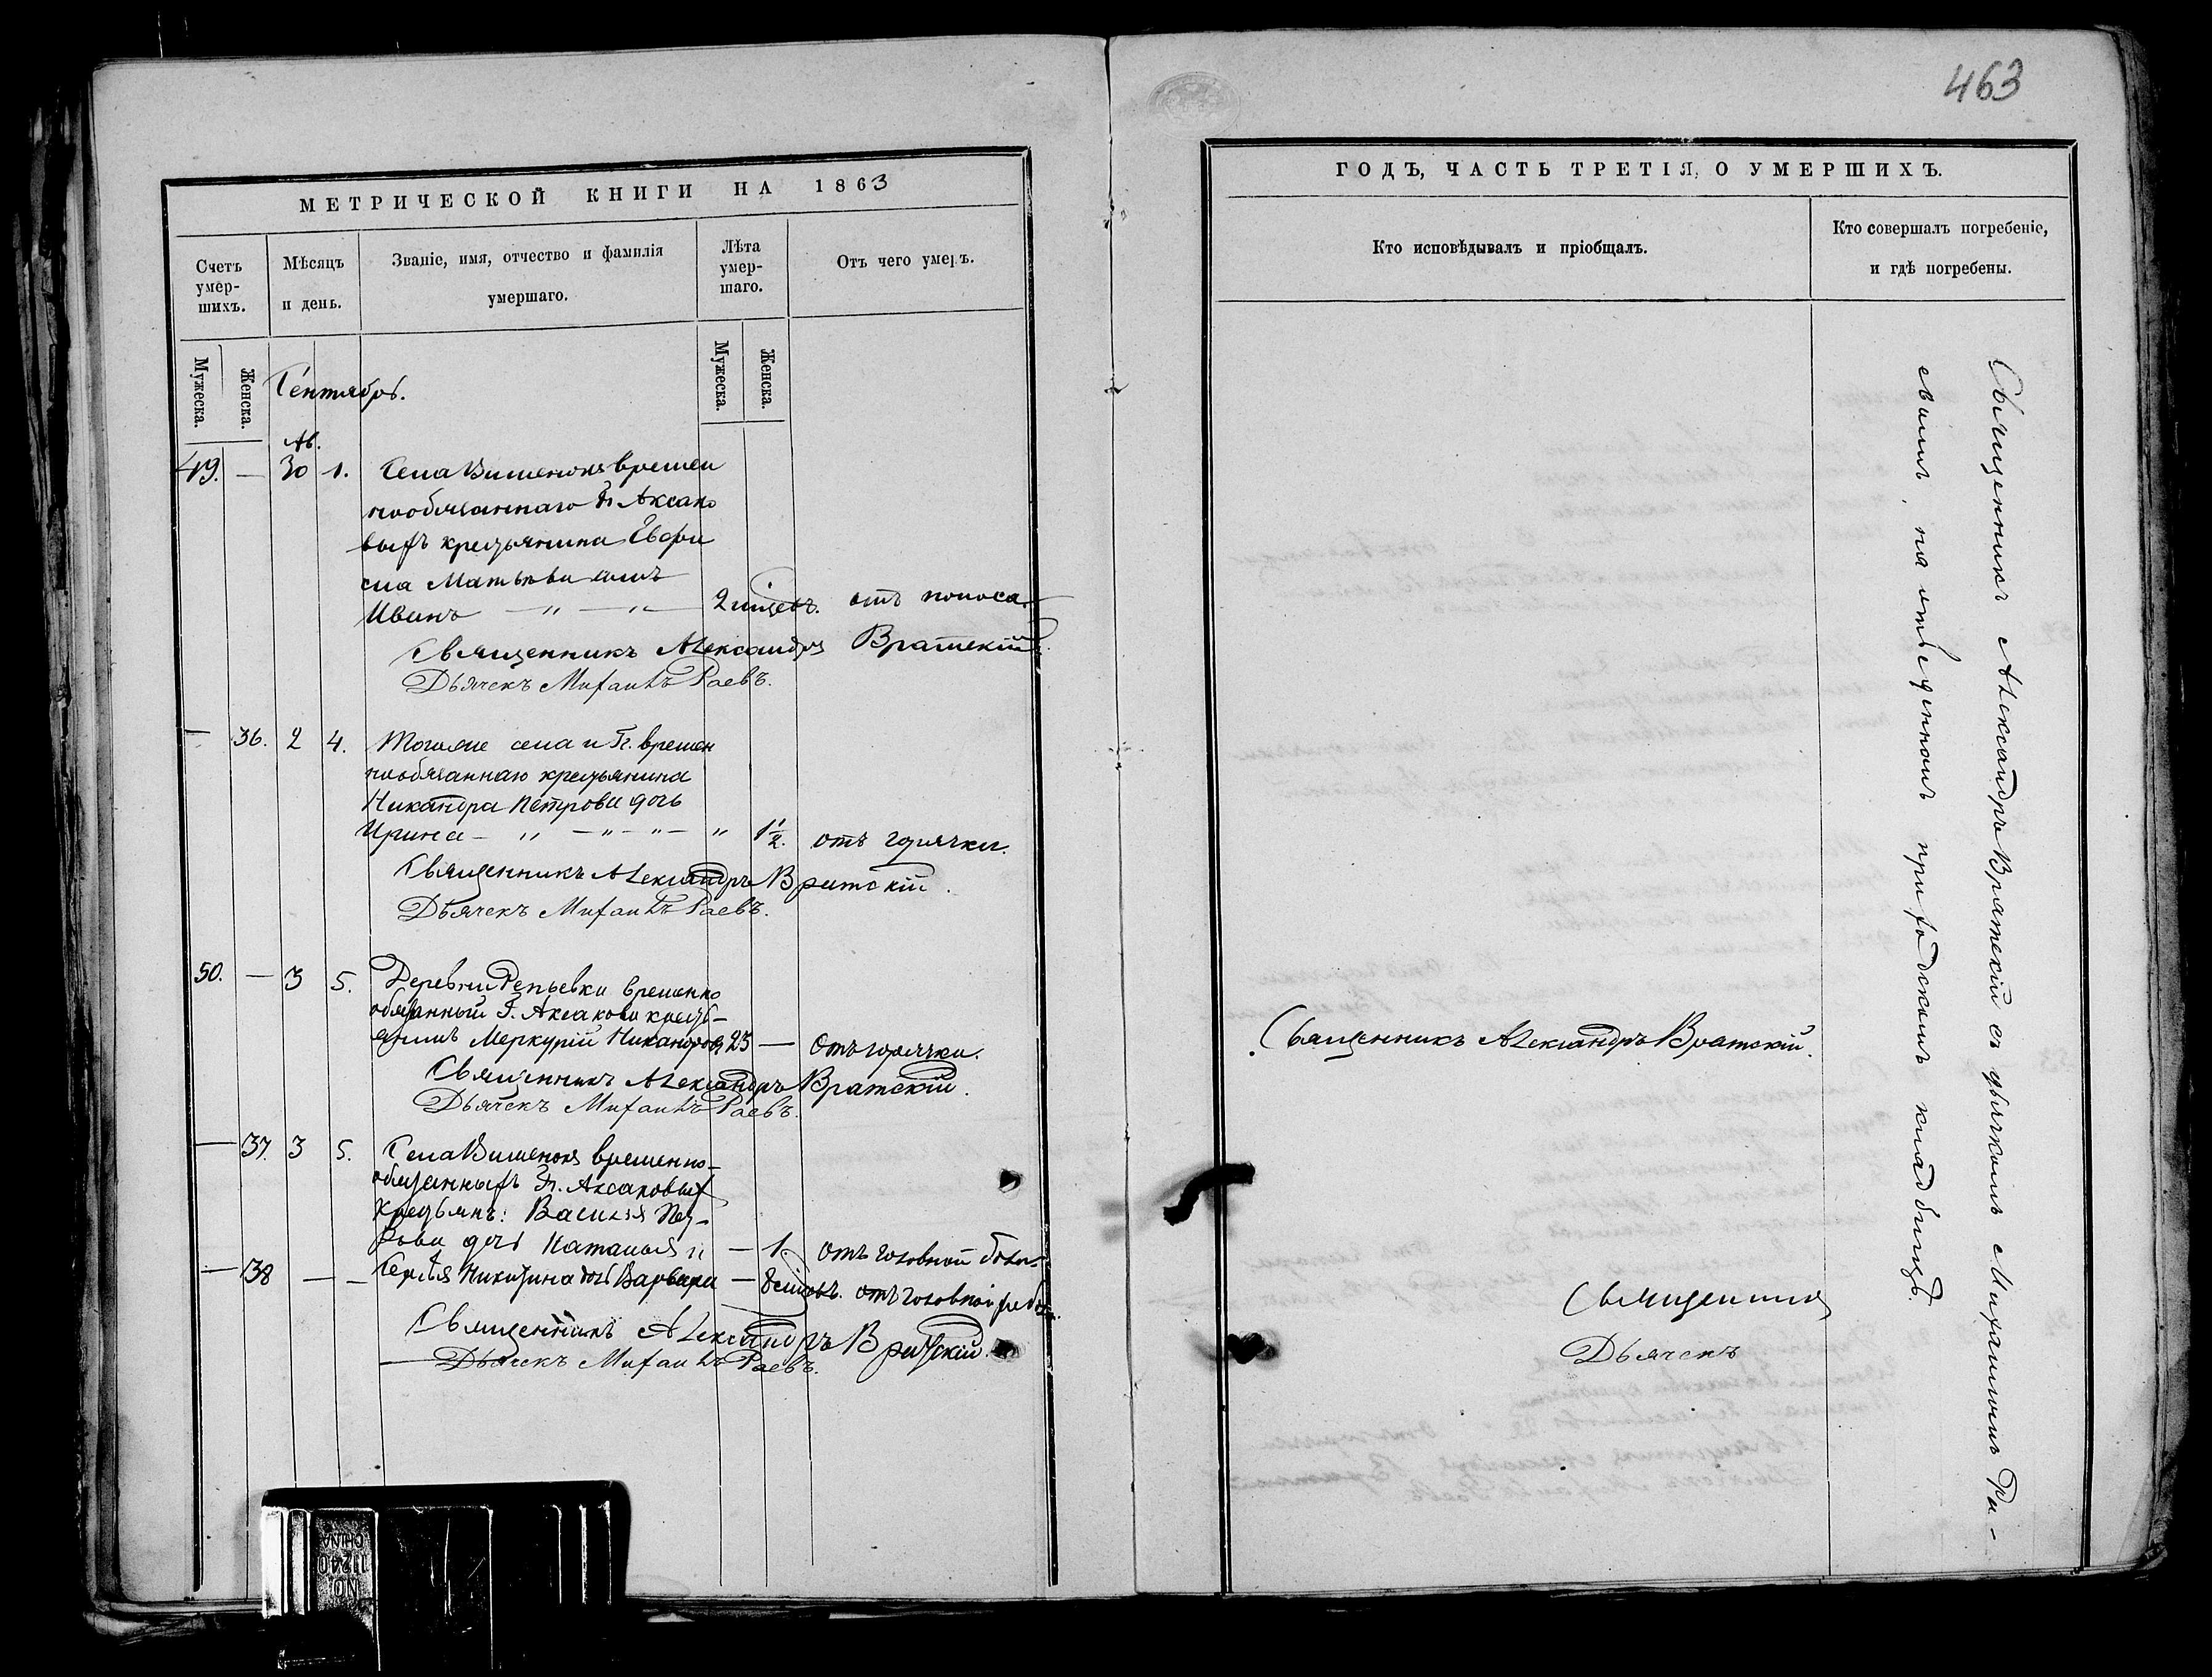 463
МЕТРИЧЕСКОЙ КНИГИ НА 1863
Счетъ умер-шихъ.
Мѣсяцъ и день.
Званіе, имя, отчество и фамилія умершаго.
Лѣта умер-шаго.
Отъ чего умеръ.
Мужеска.
Женска.
Мужеска.
Женска.
Сентябрь.
Ав.
49. — 30 1. Села Вишенокъ времен
нообязаннаго Гг. Аксако
выхъ крестьянина
Матвѣева сынъ
Иванъ — " — " — 2 мѣсяцъ. отъ поноса.
Священникъ Александръ Вратскій.
Дьячекъ Михаилъ Раевъ.
— 36. 2 4. Тогоже села и Гг. времен
нообязаннаго крестьянина
Никандра Петрова дочь
Ирина — " — " — " — " 1 1/2. отъ горячки.
Священникъ Александръ Вратскій.
Дьячекъ Михаилъ Раевъ.
50. — 3 5. Деревни Репьевки временно
обязанный Г. Аксакова кресть-
янинъ Меркурій Никаноровъ 23 — отъ горячки.
Священникъ Александръ Вратскій.
Дьячекъ Михаилъ Раевъ.
— 37. 3 5. Села Вишенокъ временно-
обязанныхъ Гг. Аксаковыхъ
крестьянъ: Василія Пет-
рова дочь Наталья " — 1. отъ головной боли
— 38 — — Сергѣя Никитина дочь Варвара — отъ головной
Священникъ Александръ Вратскій.
Дьячекъ Михаилъ Раевъ.
ГОДЪ, ЧАСТЬ ТРЕТІЯ, О УМЕРШИХЪ.
Кто исповѣдывалъ и пріобщалъ.
Кто совершалъ погребеніе, и гдѣ погребены.
Священникъ Александръ Вратскій.
Священникъ
Дьячекъ
Священникъ Александръ Вратскій съ дьячкомъ Михаиломъ Ра-
евымъ, на отведенномъ приходскомъ кладбищѣ.
NO 11240
CHINA